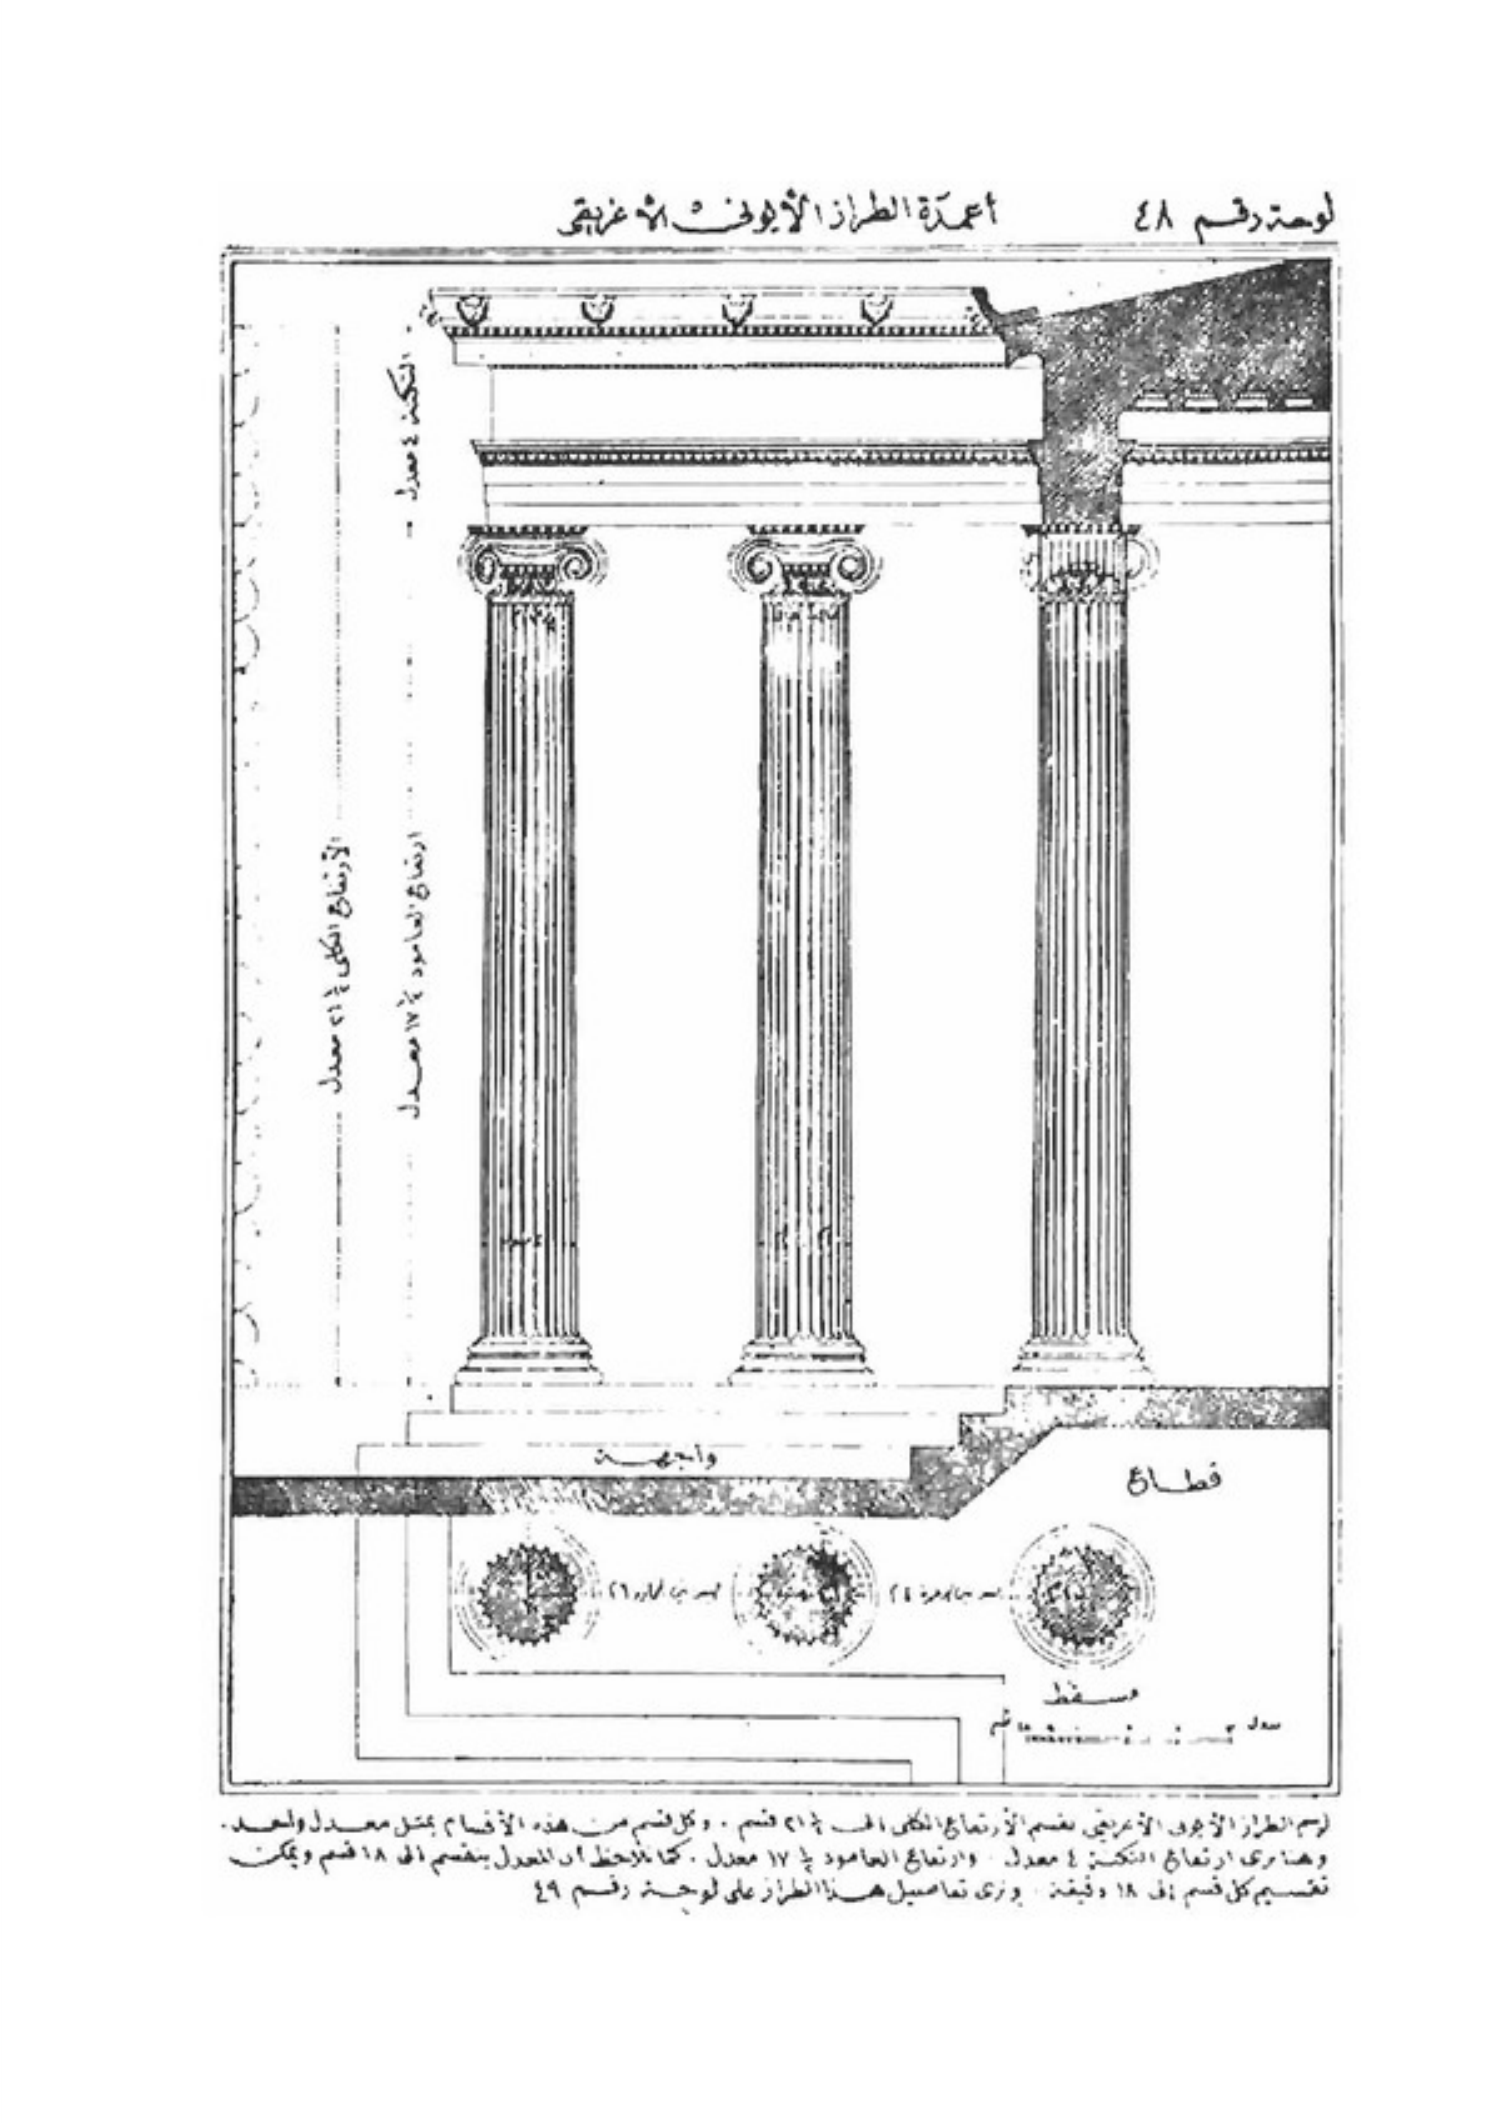 لوحة رقم ٤٨
أعمدة الطراز الأيونى الأغريقى
التكنة ٤ معدل
الأرتفاع الكلى ½ ٢١ معدل
ارتفاع العامود ½ ١٧ معدل
واجهة
قطاع
مسقط
لرسم الطراز الأيونى الأغريقى يقسم الأرتفاع الكلى الى ½ ٢١ قسم . وكل قسم من هذه الأقسام يمثل معدل واحد .
وهنا نرى ارتفاع التكنة ٤ معدل . وارتفاع العامود ½ ١٧ معدل . كما نلاحظ أن المعدل ينقسم الى ١٨ قسم ويمكن
تقسيم كل قسم الى ١٨ دقيقة . ونرى تفاصيل هذا الطراز على لوحة رقم ٤٩